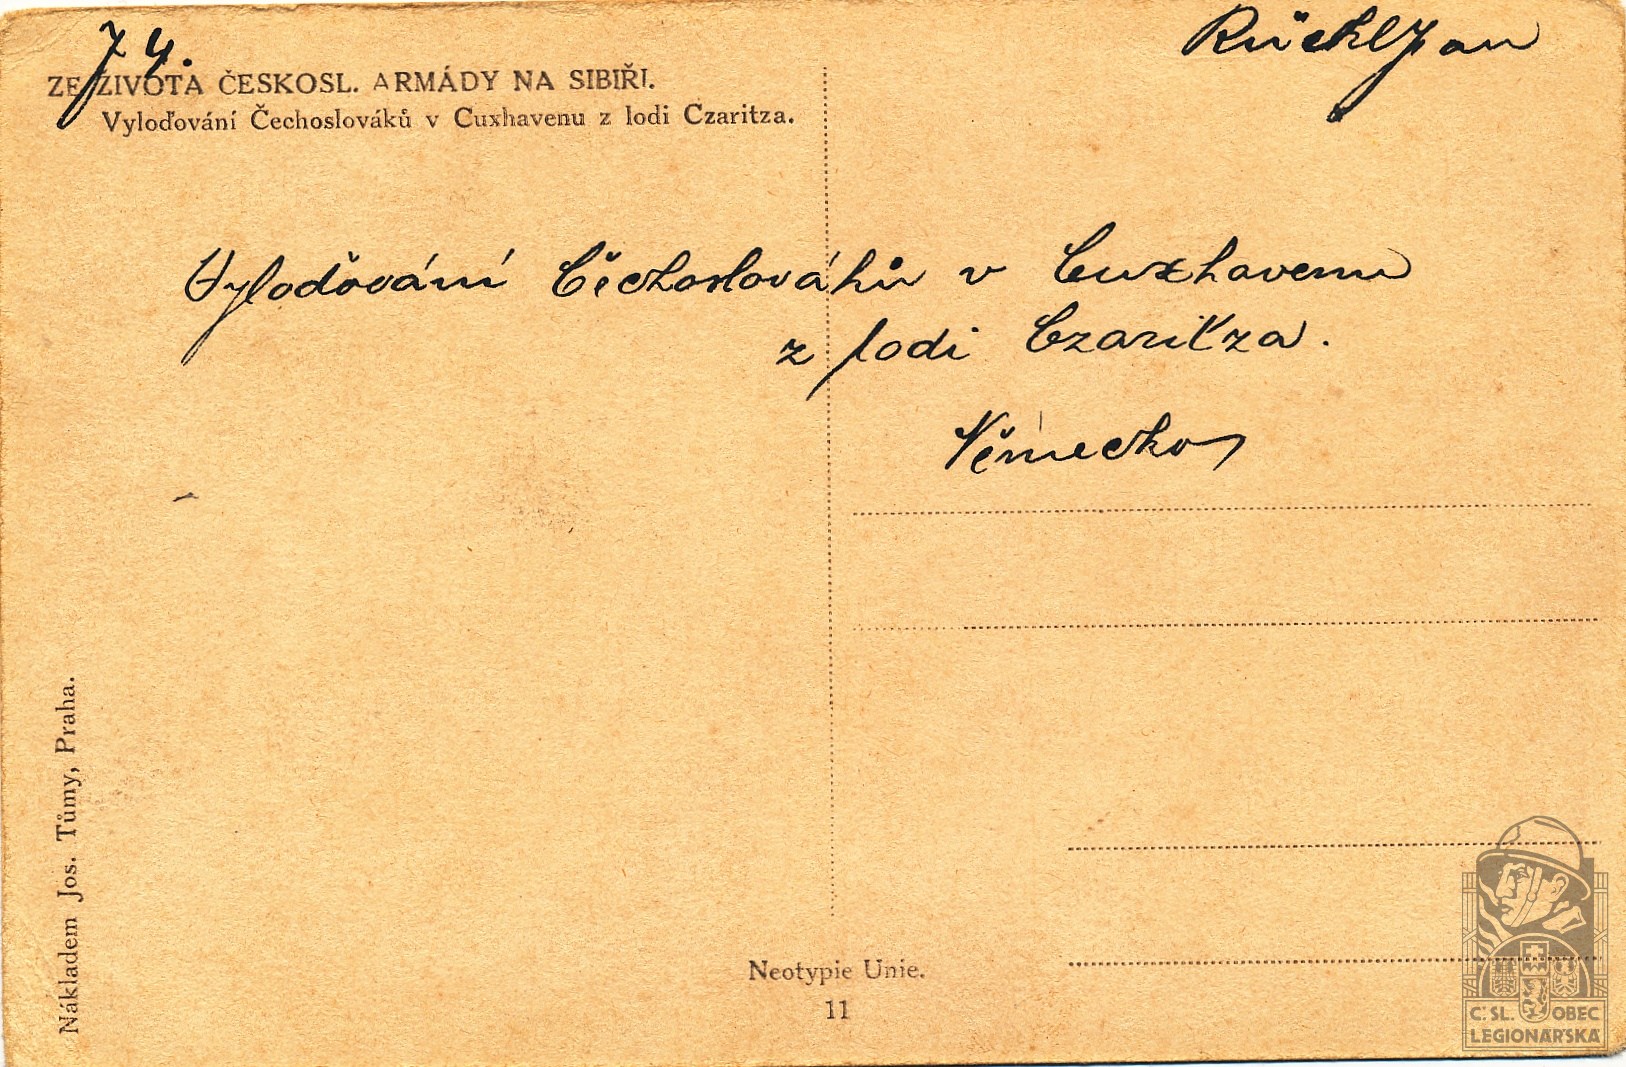 74.
Rückl Jan
ZE ŽIVOTA ČESKOSL. ARMÁDY NA SIBIŘI.
Vyloďování Čechoslováků v Cuxhavenu z lodi Czaritza.
Vyloďování Čechoslováků v Cuxhavenu
z lodi Czaritza.
Německo
Nákladem Jos. Tůmy, Praha.
Neotypie Unie.
11
Č. SL. OBEC
LEGIONÁŘSKÁ